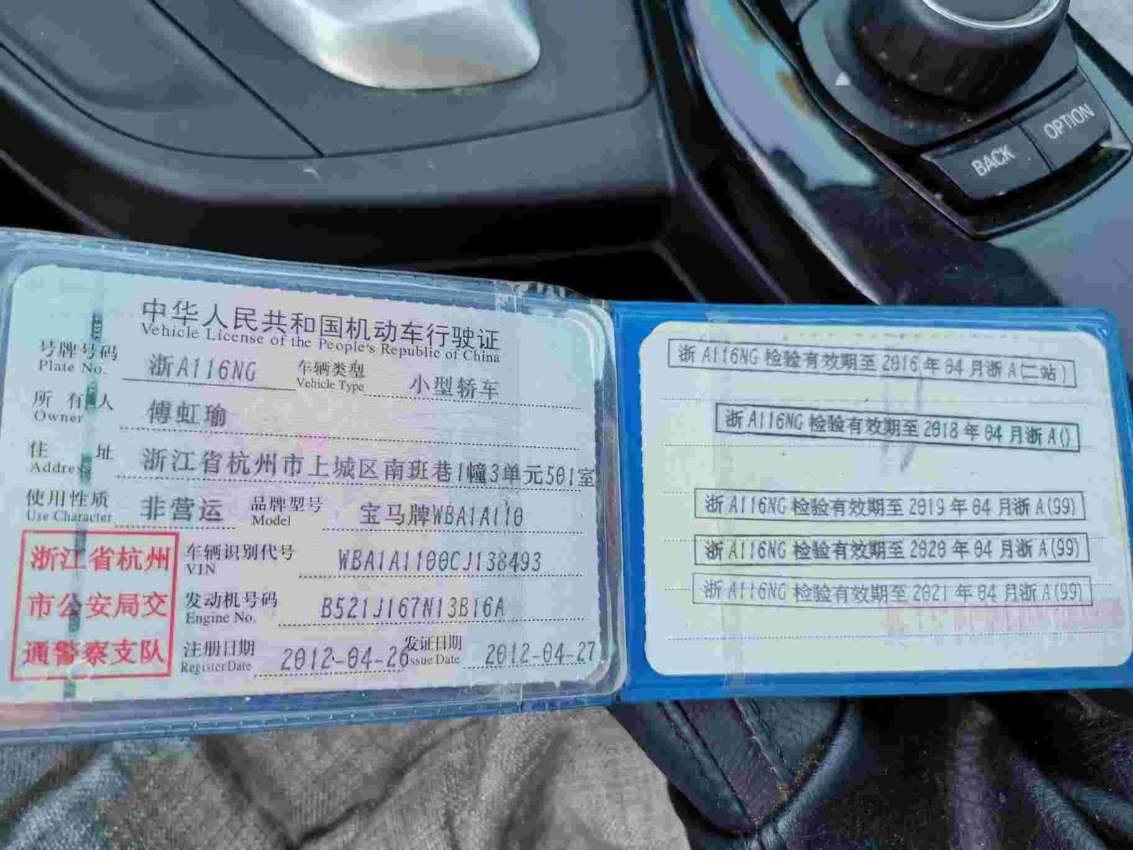 BACK
OPTION
中华人民共和国机动车行驶证
Vehicle License of the People's Republic of China
号牌号码 浙A116NG 车辆类型 小型轿车
Plate No. Vehicle Type
所有人 傅虹瑜
Owner
住址 浙江省杭州市上城区南班巷1幢3单元501室
Address
使用性质 非营运 品牌型号 宝马牌WBA1A110
Use Character Model
浙江省杭州
市公安局交
通警察支队
车辆识别代号 WBA1A1100CJ138493
VIN
发动机号码 B521J167N13B16A
Engine No.
注册日期 2012-04-26 发证日期 2012-04-27
Register Date Issue Date
浙A116NG 检验有效期至2016年04月浙A(二站)
浙A116NG 检验有效期至2018年04月浙A()
浙A116NG 检验有效期至2019年04月浙A(99)
浙A116NG 检验有效期至2020年04月浙A(99)
浙A116NG 检验有效期至2021年04月浙A(99)